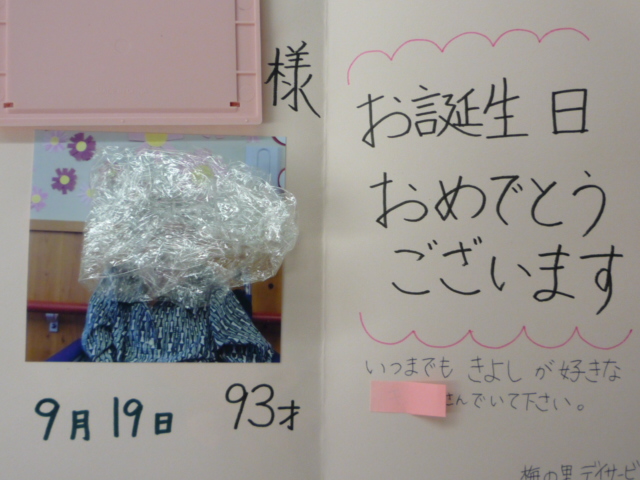 様
9月19日
93才
お誕生日
おめでとう
ございます
いつまでも きよしが好きな
さんでいて下さい。
梅の里 デイサービ